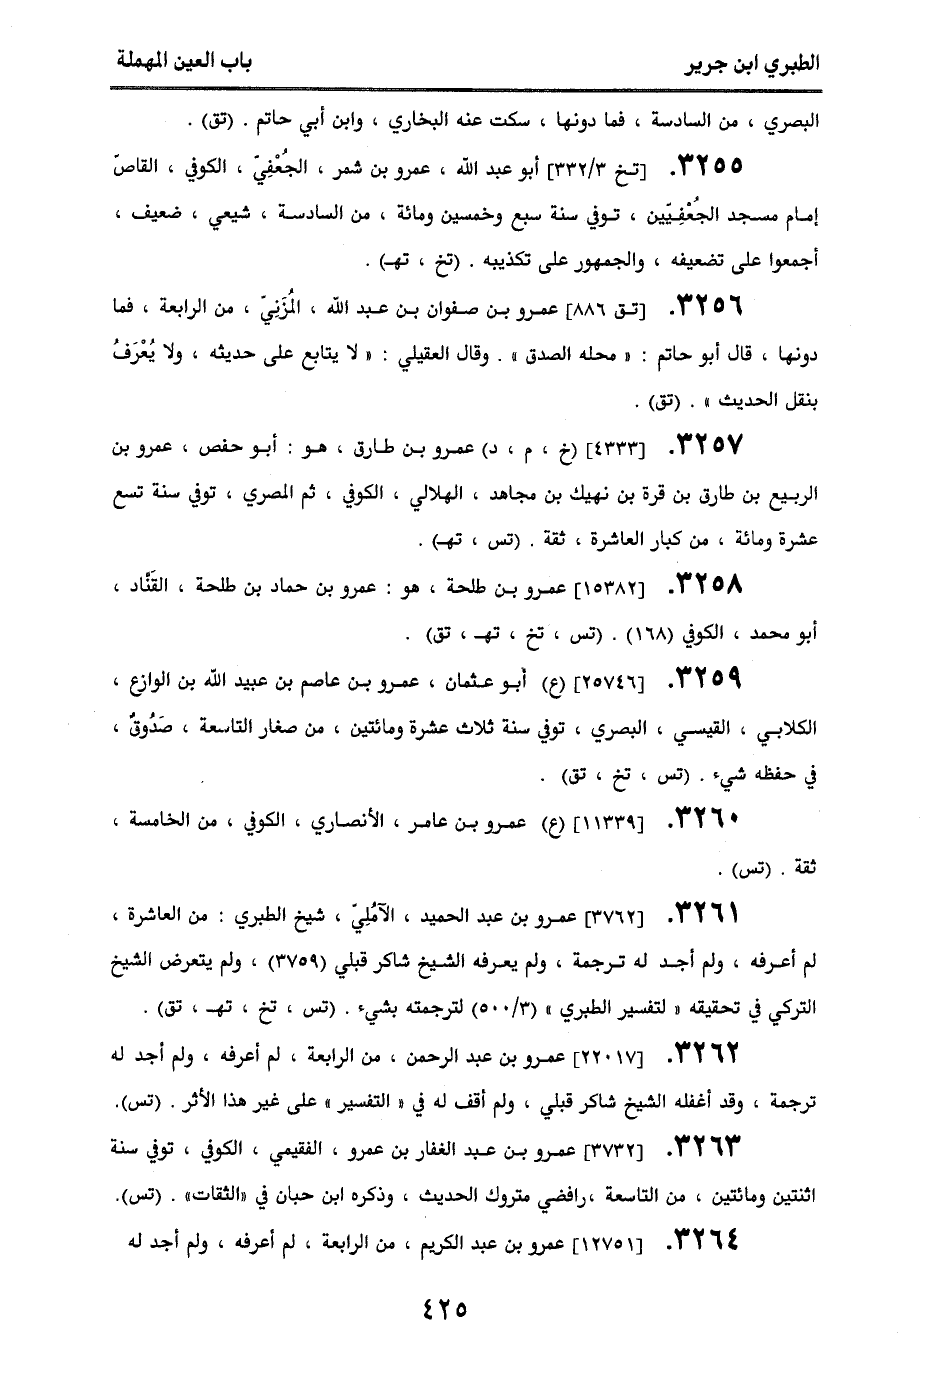 الطبري ابن جرير
باب العين المهملة
البصري ، من السادسة ، فما دونها ، سكت عنه البخاري ، وابن أبي حاتم . (تق) .
٣٢٥٥. [تخ ٣/ ٣٣٢] أبو عبد الله ، عمرو بن شمر ، الجُعْفِيّ ، الكوفي ، القاصّ
إمام مسجد الجُعْفِيّين ، توفي سنة سبع وخمسين ومائة ، من السادسة ، شيعي ، ضعيف ،
أجمعوا على تضعيفه ، والجمهور على تكذيبه . (تخ ، تهـ) .
٣٢٥٦. [تق ٨٨٦] عمرو بن صفوان بن عبد الله ، المُزَنِيّ ، من الرابعة ، فما
دونها ، قال أبو حاتم : « محله الصدق » . وقال العقيلي : « لا يتابع على حديثه ، ولا يُعْرَفُ
بنقل الحديث » . (تق) .
٣٢٥٧. [٤٣٣٣] (خ ، م ، د) عمرو بن طارق ، هو : أبو حفص ، عمرو بن
الربيع بن طارق بن قرة بن نهيك بن مجاهد ، الهلالي ، الكوفي ، ثم المصري ، توفي سنة تسع
عشرة ومائة ، من كبار العاشرة ، ثقة . (تس ، تهـ) .
٣٢٥٨. [١٥٣٨٢] عمرو بن طلحة ، هو : عمرو بن حماد بن طلحة ، القَنَّاد ،
أبو محمد ، الكوفي (١٦٨) . (تس ، تخ ، تهـ ، تق) .
٣٢٥٩. [٢٥٧٤٦] (ع) أبو عثمان ، عمرو بن عاصم بن عبيد الله بن الوازع ،
الكلابي ، القيسي ، البصري ، توفي سنة ثلاث عشرة ومائتين ، من صغار التاسعة ، صَدُوقٌ ،
في حفظه شيء . (تس ، تخ ، تق) .
٣٢٦٠. [١١٣٣٩] (ع) عمرو بن عامر ، الأنصاري ، الكوفي ، من الخامسة ،
ثقة . (تس) .
٣٢٦١. [٣٧٦٢] عمرو بن عبد الحميد ، الآمُلِيّ ، شيخ الطبري : من العاشرة ،
لم أعرفه ، ولم أجد له ترجمة ، ولم يعرفه الشيخ شاكر قبلي (٣٧٥٩) ، ولم يتعرض الشيخ
التركي في تحقيقه « لتفسير الطبري » (٣/ ٥٠٠) لترجمته بشيء . (تس ، تخ ، تهـ ، تق) .
٣٢٦٢. [٢٢٠١٧] عمرو بن عبد الرحمن ، من الرابعة ، لم أعرفه ، ولم أجد له
ترجمة ، وقد أغفله الشيخ شاكر قبلي ، ولم أقف له في « التفسير » على غير هذا الأثر . (تس).
٣٢٦٣. [٣٧٣٢] عمرو بن عبد الغفار بن عمرو ، الفقيمي ، الكوفي ، توفي سنة
اثنتين ومائتين ، من التاسعة ،رافضي متروك الحديث ، وذكره ابن حبان في «الثقات» . (تس).
٣٢٦٤. [١٢٧٥١] عمرو بن عبد الكريم ، من الرابعة ، لم أعرفه ، ولم أجد له
٤٢٥